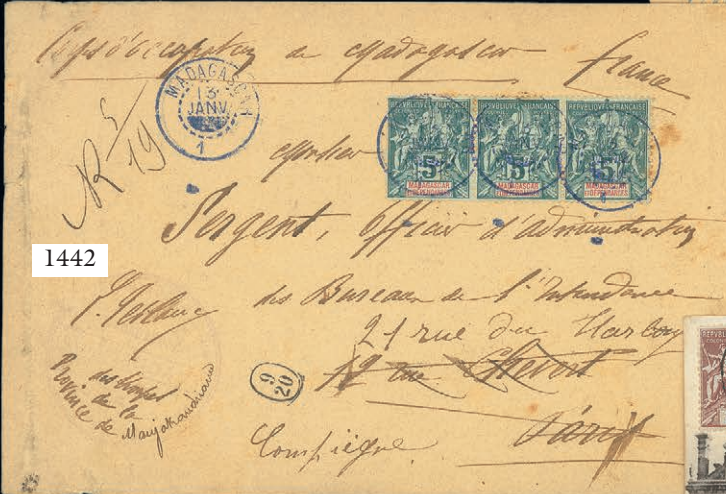 Corps d'occupation de Madagascar
France
R 5/19
MADAGASCAR
13
JANV
1
REPUBLIQUE FRANÇAISE
REPUBLIQUE FRANÇAISE
REPUBLIQUE FRANÇAISE
5
5
5
MADAGASCAR
MADAGASCAR
MADAGASCAR
Monsieur
Sergent, Officier d'administration
1442
des Bureaux de l'Intendance
21 rue du Harlay
12 rue Chevert
Paris
Compiègne
des troupes
de la
Province de Manjakandriana
9
20